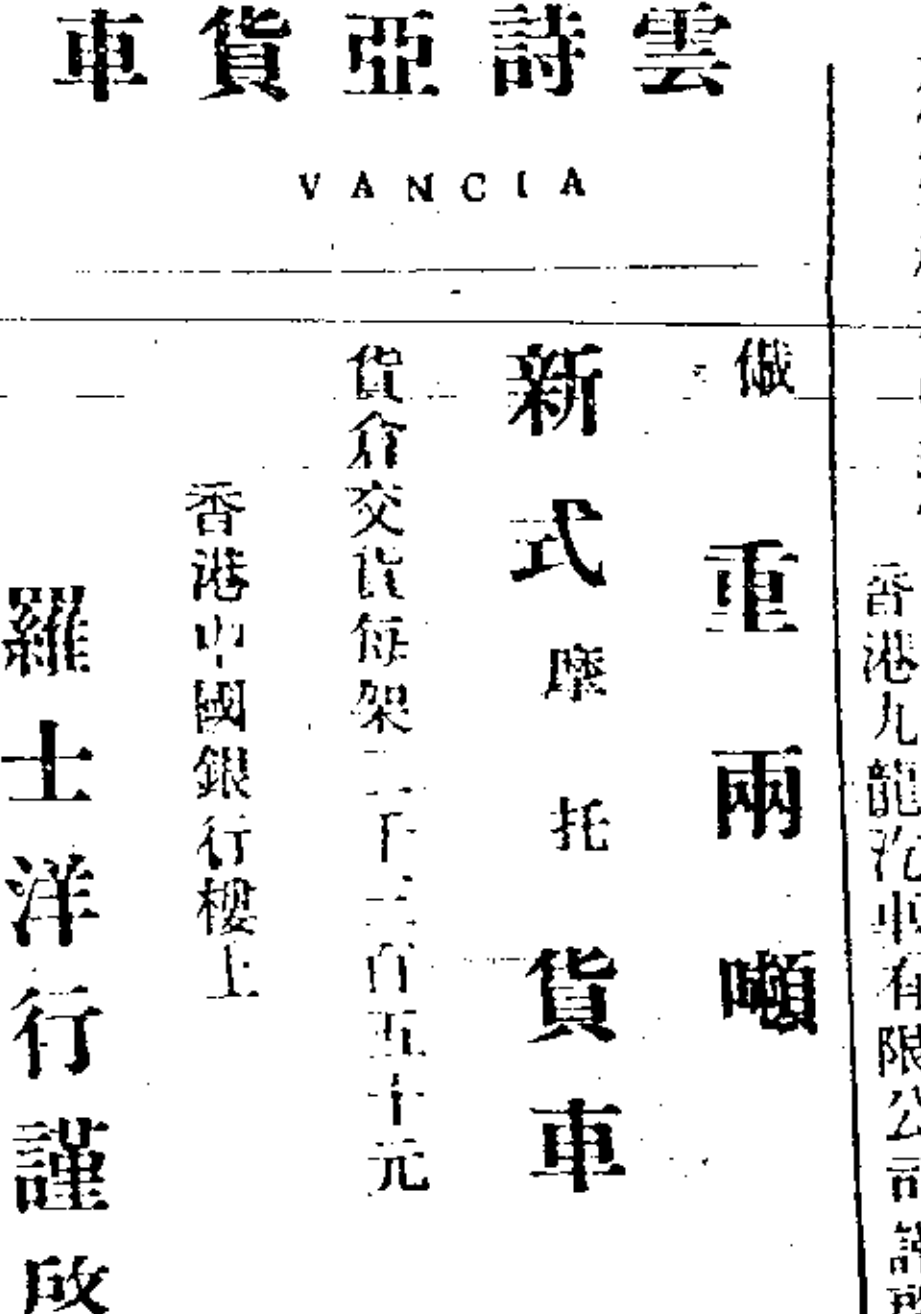 雲詩亞貨車
VANCIA
儎重兩噸
新式摩托貨車
貨倉交貨每架二千三百五十元
香港中國銀行樓上
羅士洋行謹啟
香港九龍汽車有限公司